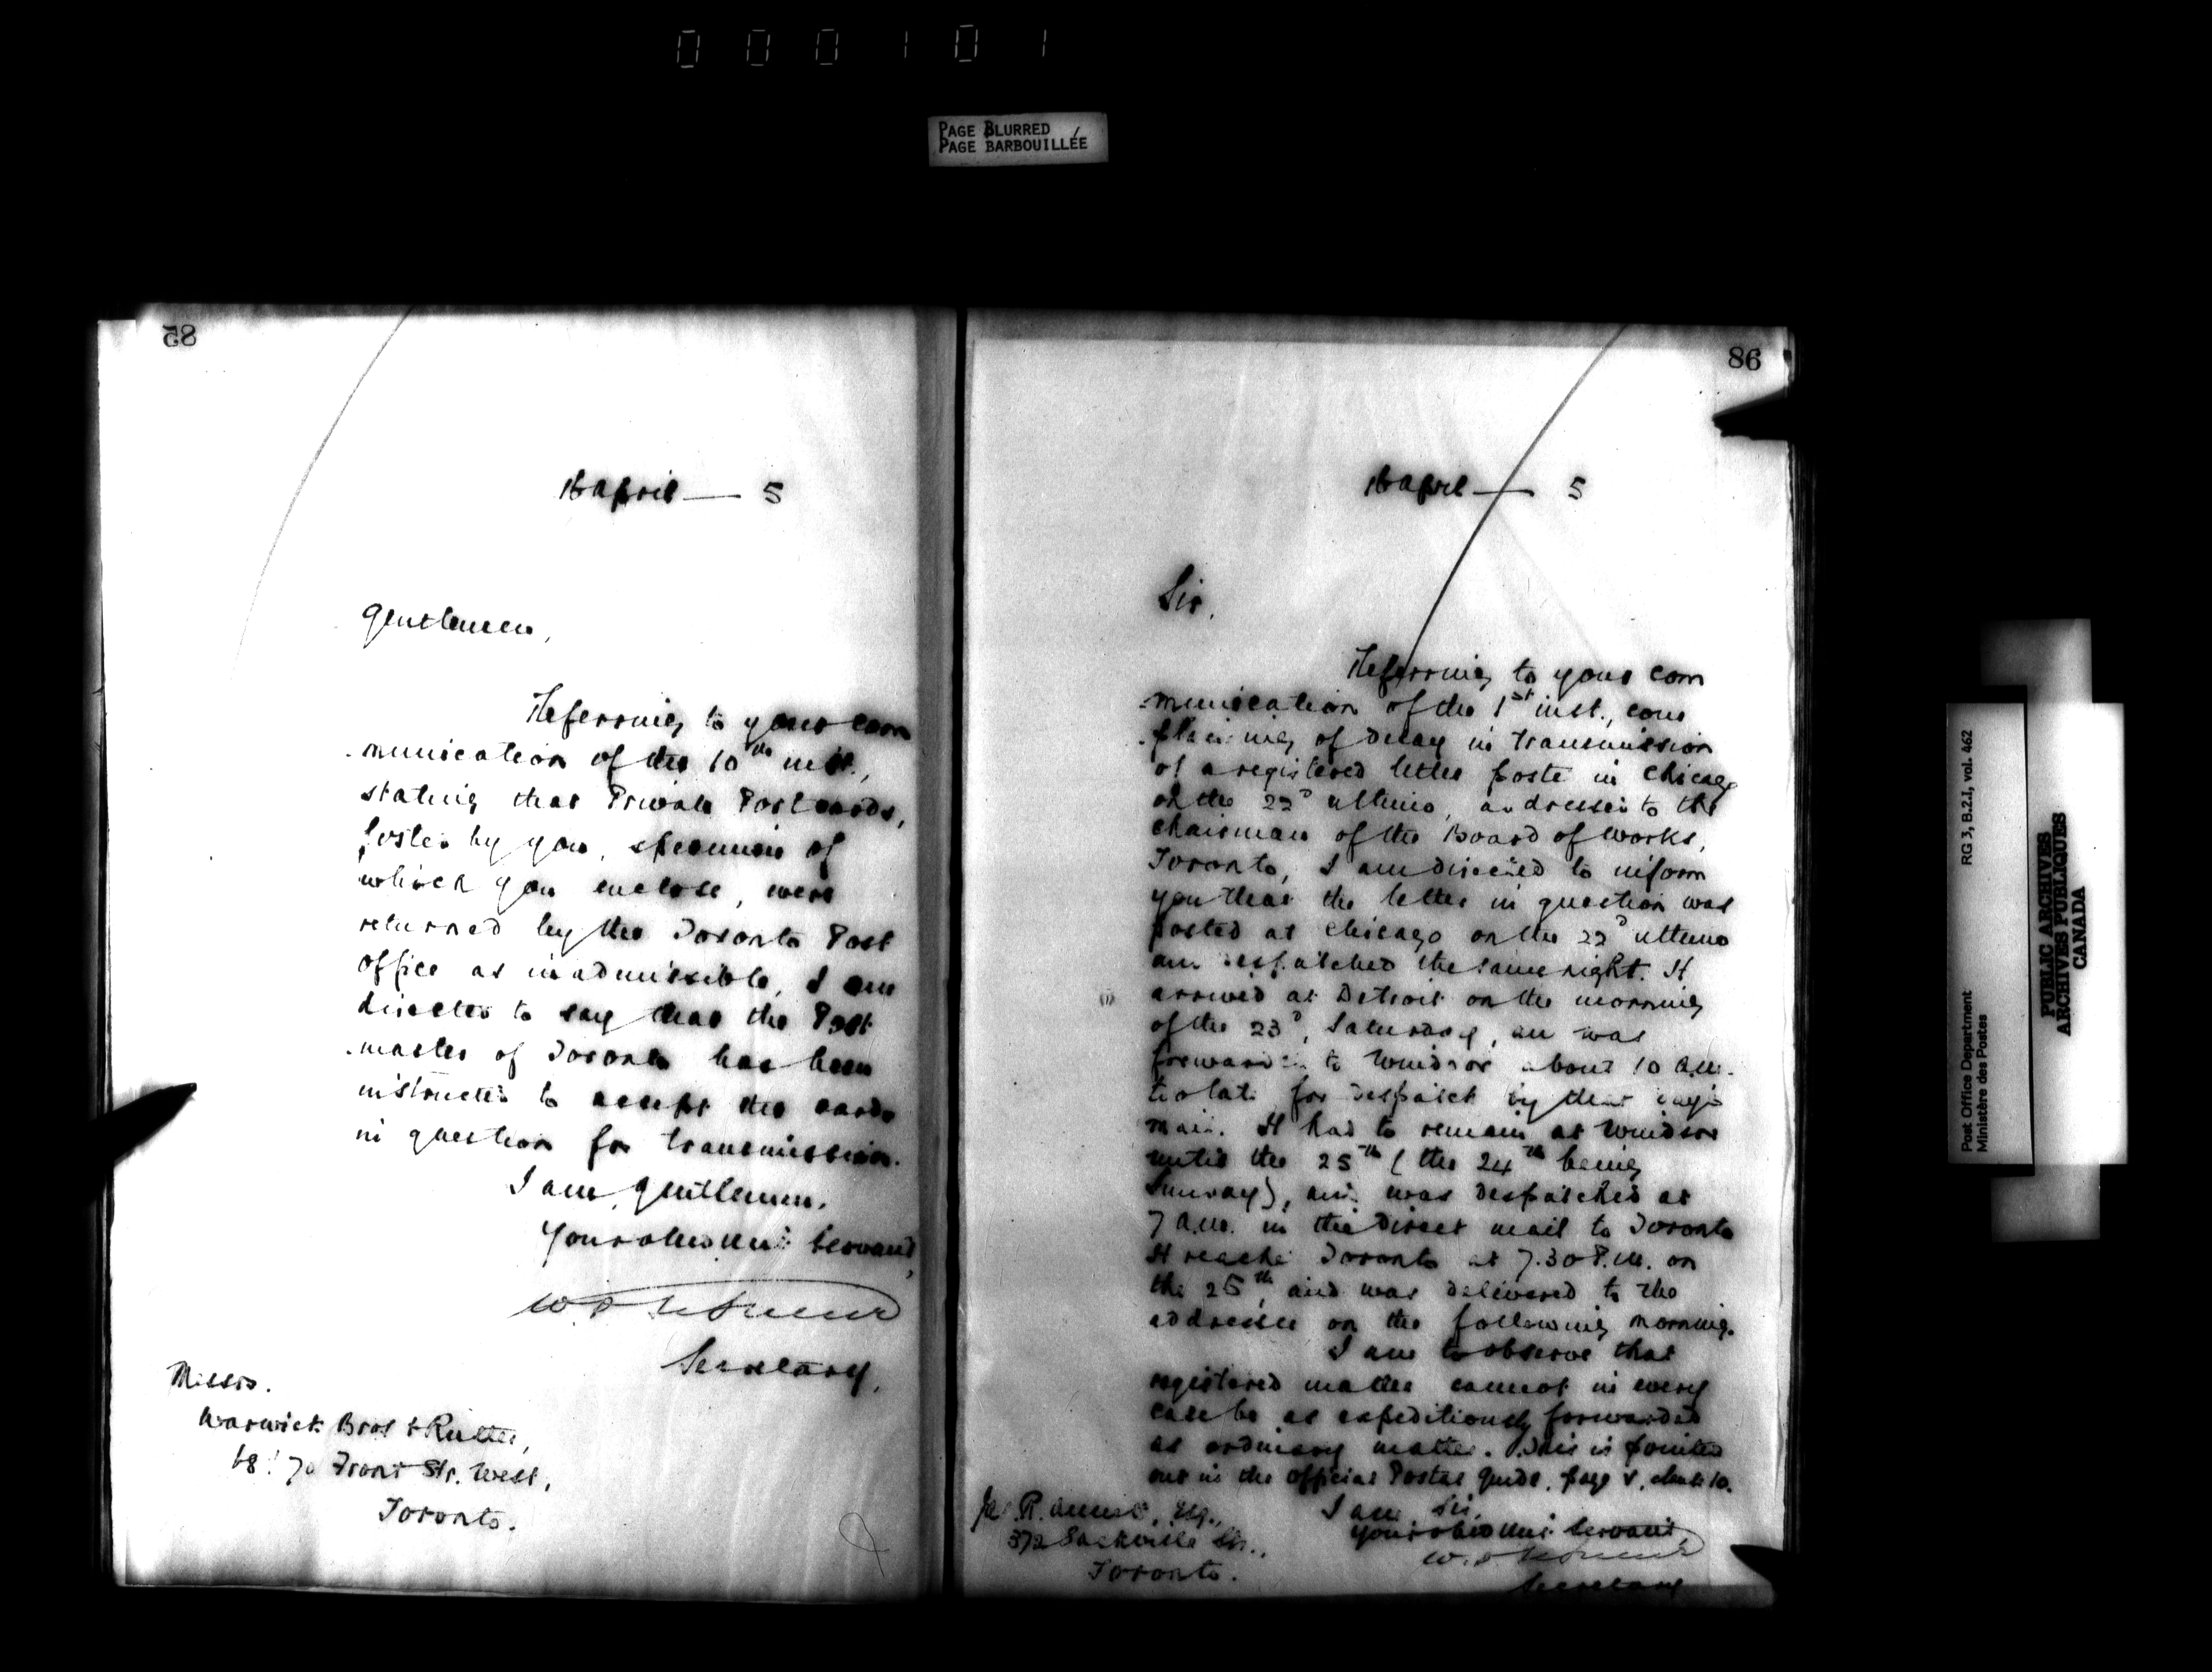 000101
PAGE BLURRED
PAGE BARBOUILLÉE
85
16 April — 5
Gentlemen,
Referring to your com
munication of the 10th inst.,
stating that Private Postcards,
posted by you, specimen of
which you enclose, were
returned by the Toronto Post
Office as inadmissible, I am
directed to say that the Post
master of Toronto has been
instructed to accept the cards
in question for transmission.
I am, Gentlemen,
Your obedient Servant,
Secretary.
Messrs.
Warwick Bros & Rutter,
68 & 70 Front Str. West,
Toronto.
86
16 April — 5
Sir,
Referring to your com
munication of the 1st inst., com
plaining of delay in transmission
of a registered letter posted in Chicago
on the 22d ultimo, addressed to the
Chairman of the Board of Works,
Toronto, I am directed to inform
you that the letter in question was
posted at Chicago on the 22d ultimo
and despatched the same night. It
arrived at Detroit on the morning
of the 23d, Saturday, and was
forwarded to Windsor about 10 a.m.
too late for despatch by that day's
mail. It had to remain at Windsor
until the 25th (the 24th being
Sunday), and was despatched at
7 a.m. in the direct mail to Toronto
It reached Toronto at 7.30 P.M. on
the 25th, and was delivered to the
addressee on the following morning.
I am to observe that
registered matter cannot in every
case be as expeditiously forwarded
as ordinary matter. This is pointed
out in the Official Postal Guide, page V, clause 10.
I am, Sir,
Your obedient Servant,
Secretary
R. , Esq.,
372 Sackville Str.,
Toronto.
Post Office Department RG 3, B.2.I, vol. 462
Ministère des Postes
PUBLIC ARCHIVES
ARCHIVES PUBLIQUES
CANADA